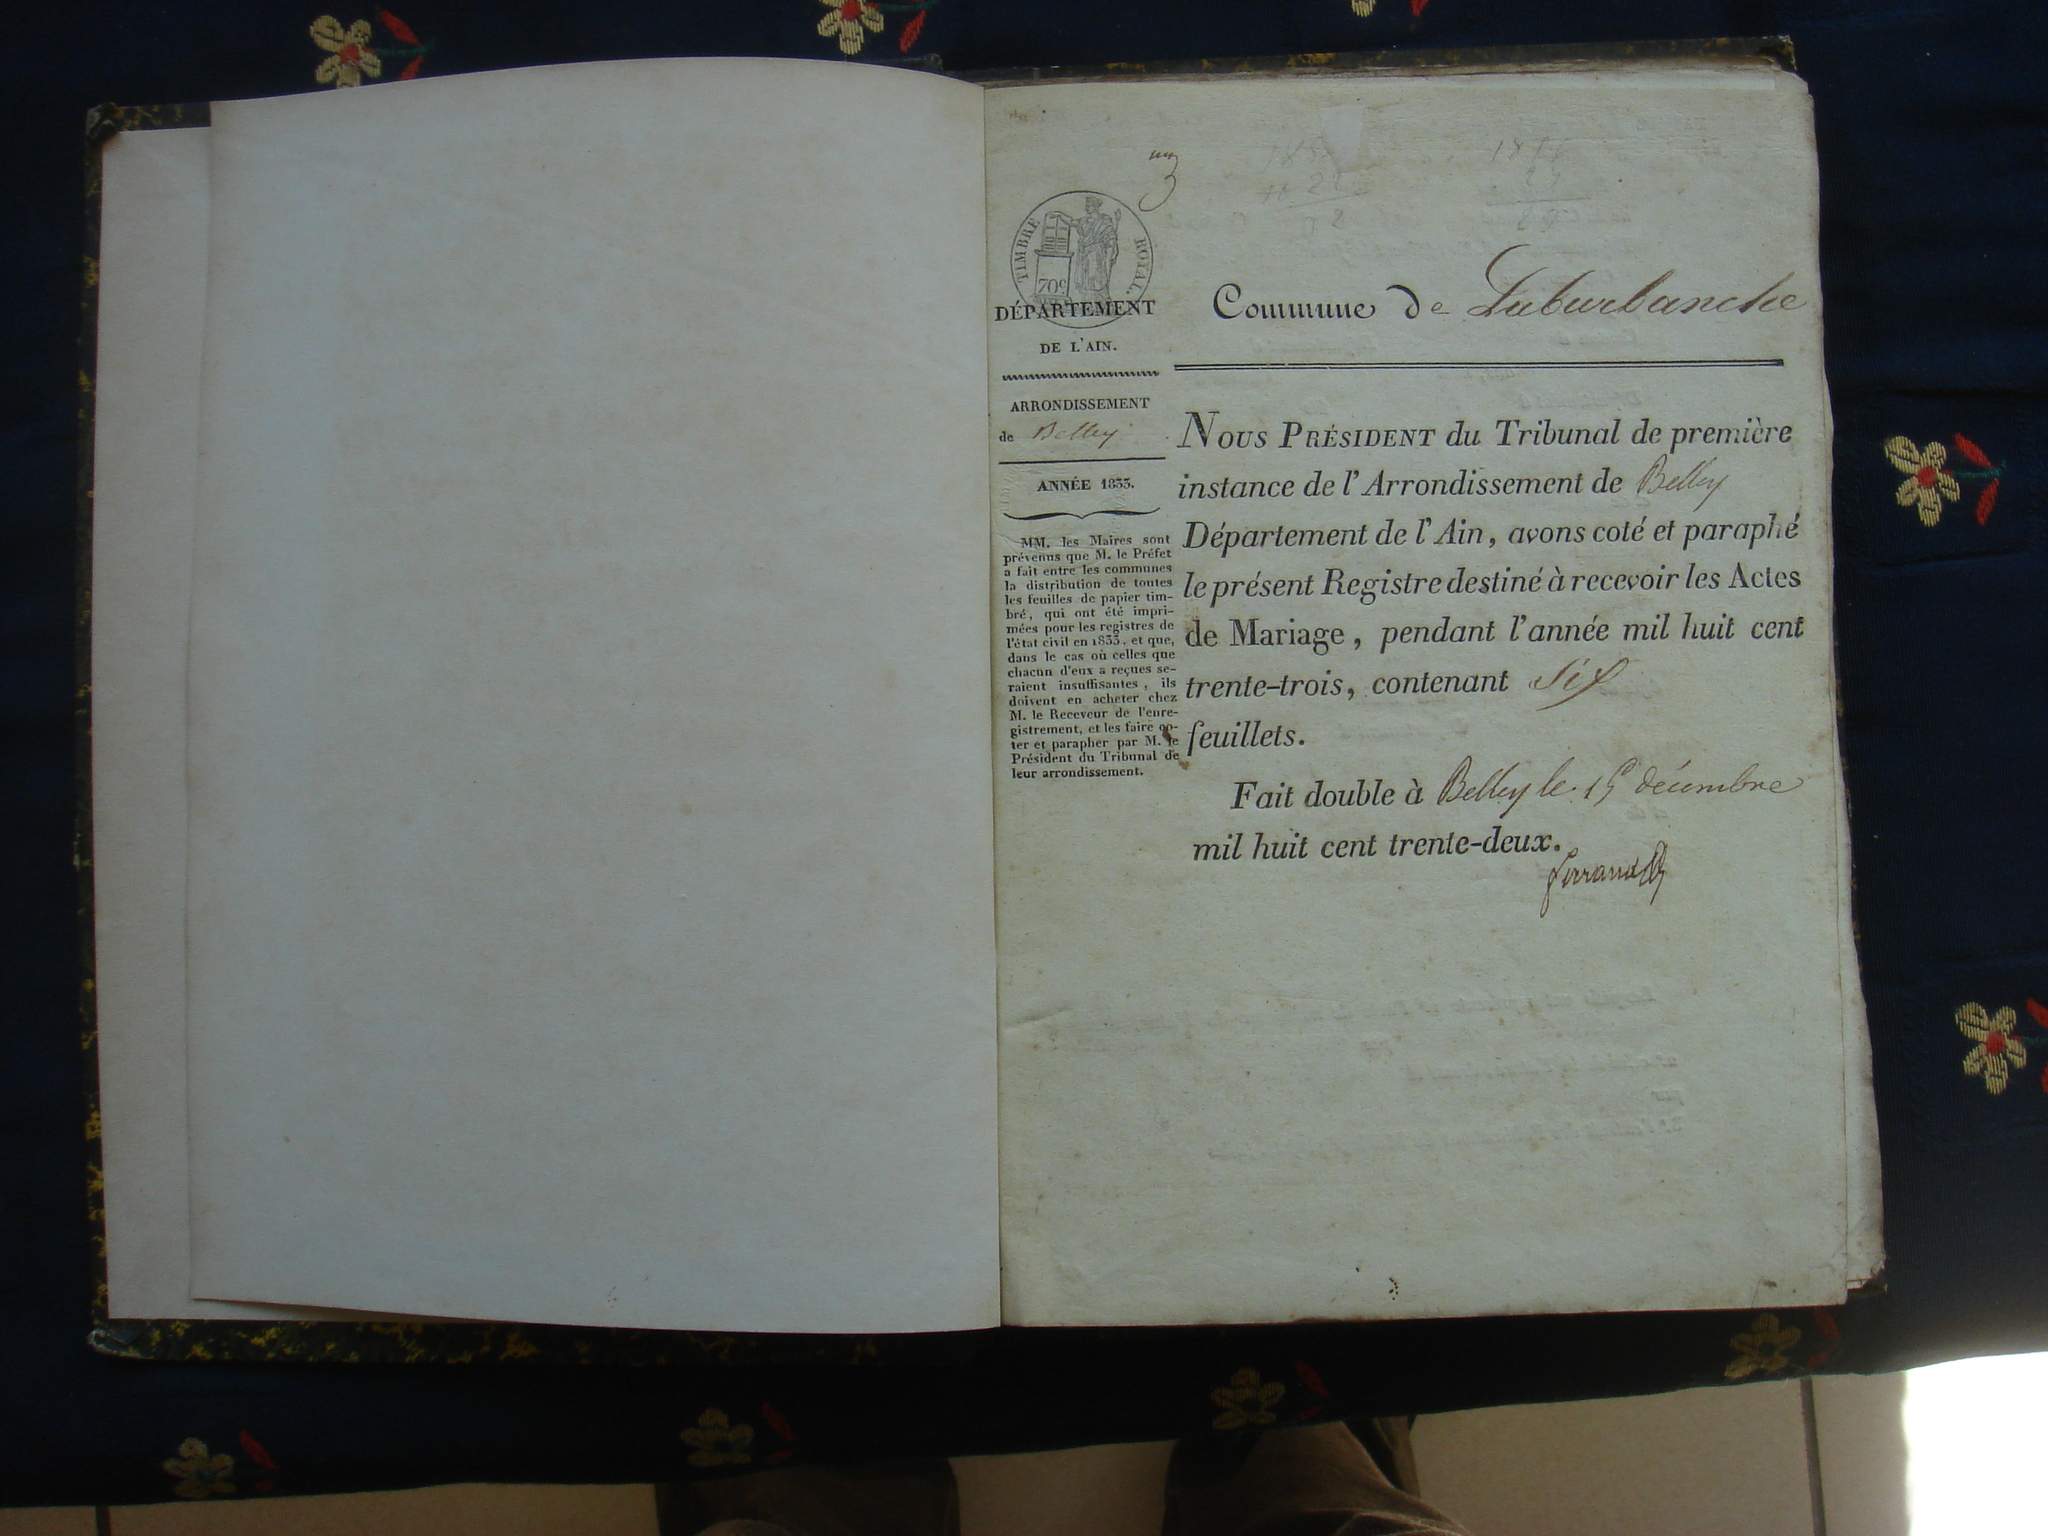 TIMBRE ROYAL.
70c
DÉPARTEMENT
DE L'AIN.
ARRONDISSEMENT
de Belley
ANNÉE 1833.
MM. les Maires sont
prévenus que M. le Préfet
a fait entre les communes
la distribution de toutes
les feuilles de papier tim-
bré, qui ont été impri-
mées pour les registres de
l'état civil en 1833, et que,
dans le cas où celles que
chacun d'eux a reçues se-
raient insuffisantes, ils
doivent en acheter chez
M. le Receveur de l'enre-
gistrement, et les faire co-
ter et parapher par M. le
Président du Tribunal de
leur arrondissement.
Commune de Laburbanche
NOUS PRÉSIDENT du Tribunal de première
instance de l'Arrondissement de Belley
Département de l'Ain, avons coté et paraphé
le présent Registre destiné à recevoir les Actes
de Mariage, pendant l'année mil huit cent
trente-trois, contenant Six
feuillets.
Fait double à Belley le 15 décembre
mil huit cent trente-deux.